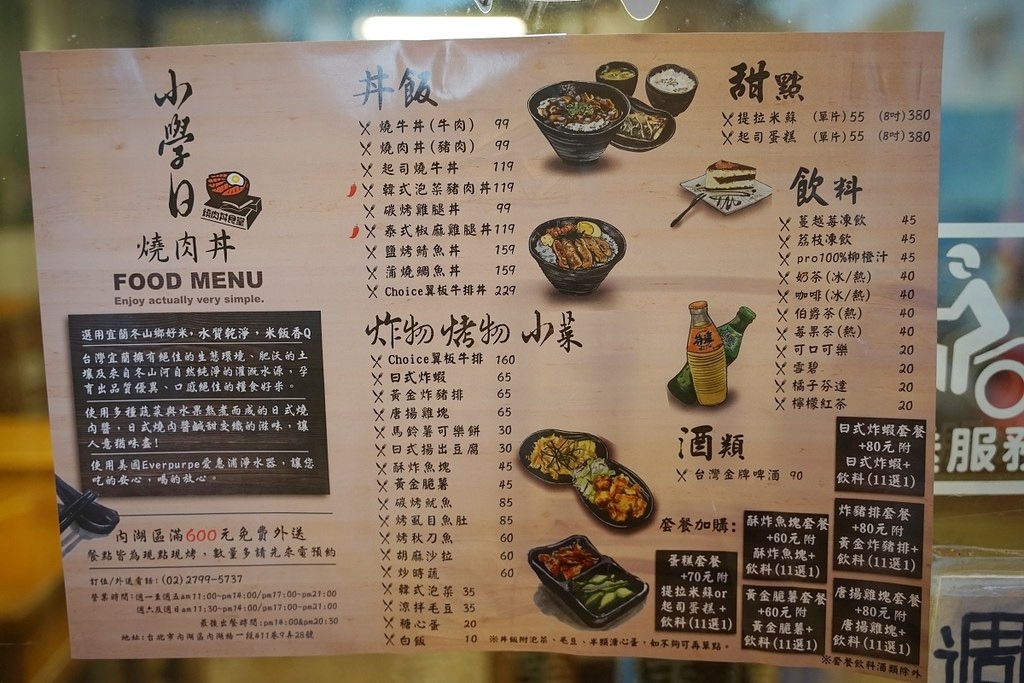 小學日
燒肉丼食堂
燒肉丼
FOOD MENU
Enjoy actually very simple.
選用宜蘭冬山鄉好米，水質乾淨，米飯香Q
台灣宜蘭擁有絕佳的生態環境、肥沃的土
壤及來自冬山河自然純淨的灌溉水源，孕
育出品質優異、口感絕佳的糧食好米。
使用多種蔬菜與水果熬煮而成的日式燒
肉醬，日式燒肉醬鹹甜交織的滋味，讓
人意猶味盡!
使用美國Everpurpe愛惠浦淨水器，讓您
吃的安心，喝的放心。
內湖區滿600元免費外送
餐點皆為現點現烤，數量多請先來電預約
訂位/外送電話：(02)2799-5737
營業時間：週一至週五am11:00-pm14:00/pm17:00-pm21:00
週六及週日am11:30-pm14:00/pm17:00-pm21:00
最後出餐時間:pm14:00&pm20:30
地址:台北市內湖區內湖路一段411巷9弄28號
丼飯
燒牛丼(牛肉) 99
燒肉丼(豬肉) 99
起司燒牛丼 119
韓式泡菜豬肉丼119
碳烤雞腿丼 99
泰式椒麻雞腿丼119
鹽烤鯖魚丼 159
蒲燒鯛魚丼 159
Choice翼板牛排丼 229
炸物 烤物 小菜
Choice翼板牛排 160
日式炸蝦 65
黃金炸豬排 65
唐揚雞塊 65
馬鈴薯可樂餅 30
日式揚出豆腐 30
酥炸魚塊 45
黃金脆薯 45
碳烤魷魚 85
烤虱目魚肚 85
烤秋刀魚 60
胡麻沙拉 60
炒時蔬 60
韓式泡菜 35
涼拌毛豆 35
糖心蛋 20
白飯 10
甜點
提拉米蘇 (單片)55 (8吋)380
起司蛋糕 (單片)55 (8吋)380
飲料
蔓越莓凍飲 45
荔枝凍飲 45
pro100%柳橙汁 45
奶茶(冰/熱) 40
咖啡(冰/熱) 40
伯爵茶(熱) 40
莓果茶(熱) 40
可口可樂 20
雪碧 20
橘子芬達 20
檸檬紅茶 20
酒類
台灣金牌啤酒 90
套餐加購:
蛋糕套餐
+70元 附
提拉米蘇or
起司蛋糕+
飲料(11選1)
酥炸魚塊套餐
+60元 附
酥炸魚塊+
飲料(11選1)
黃金脆薯套餐
+60元 附
黃金脆薯+
飲料(11選1)
日式炸蝦套餐
+80元 附
日式炸蝦+
飲料(11選1)
炸豬排套餐
+80元 附
黃金炸豬排+
飲料(11選1)
唐揚雞塊套餐
+80元 附
唐揚雞塊+
飲料(11選1)
※丼飯附泡菜、毛豆、半顆溏心蛋，如不夠可再單點。
※套餐飲料酒類除外
服務
週